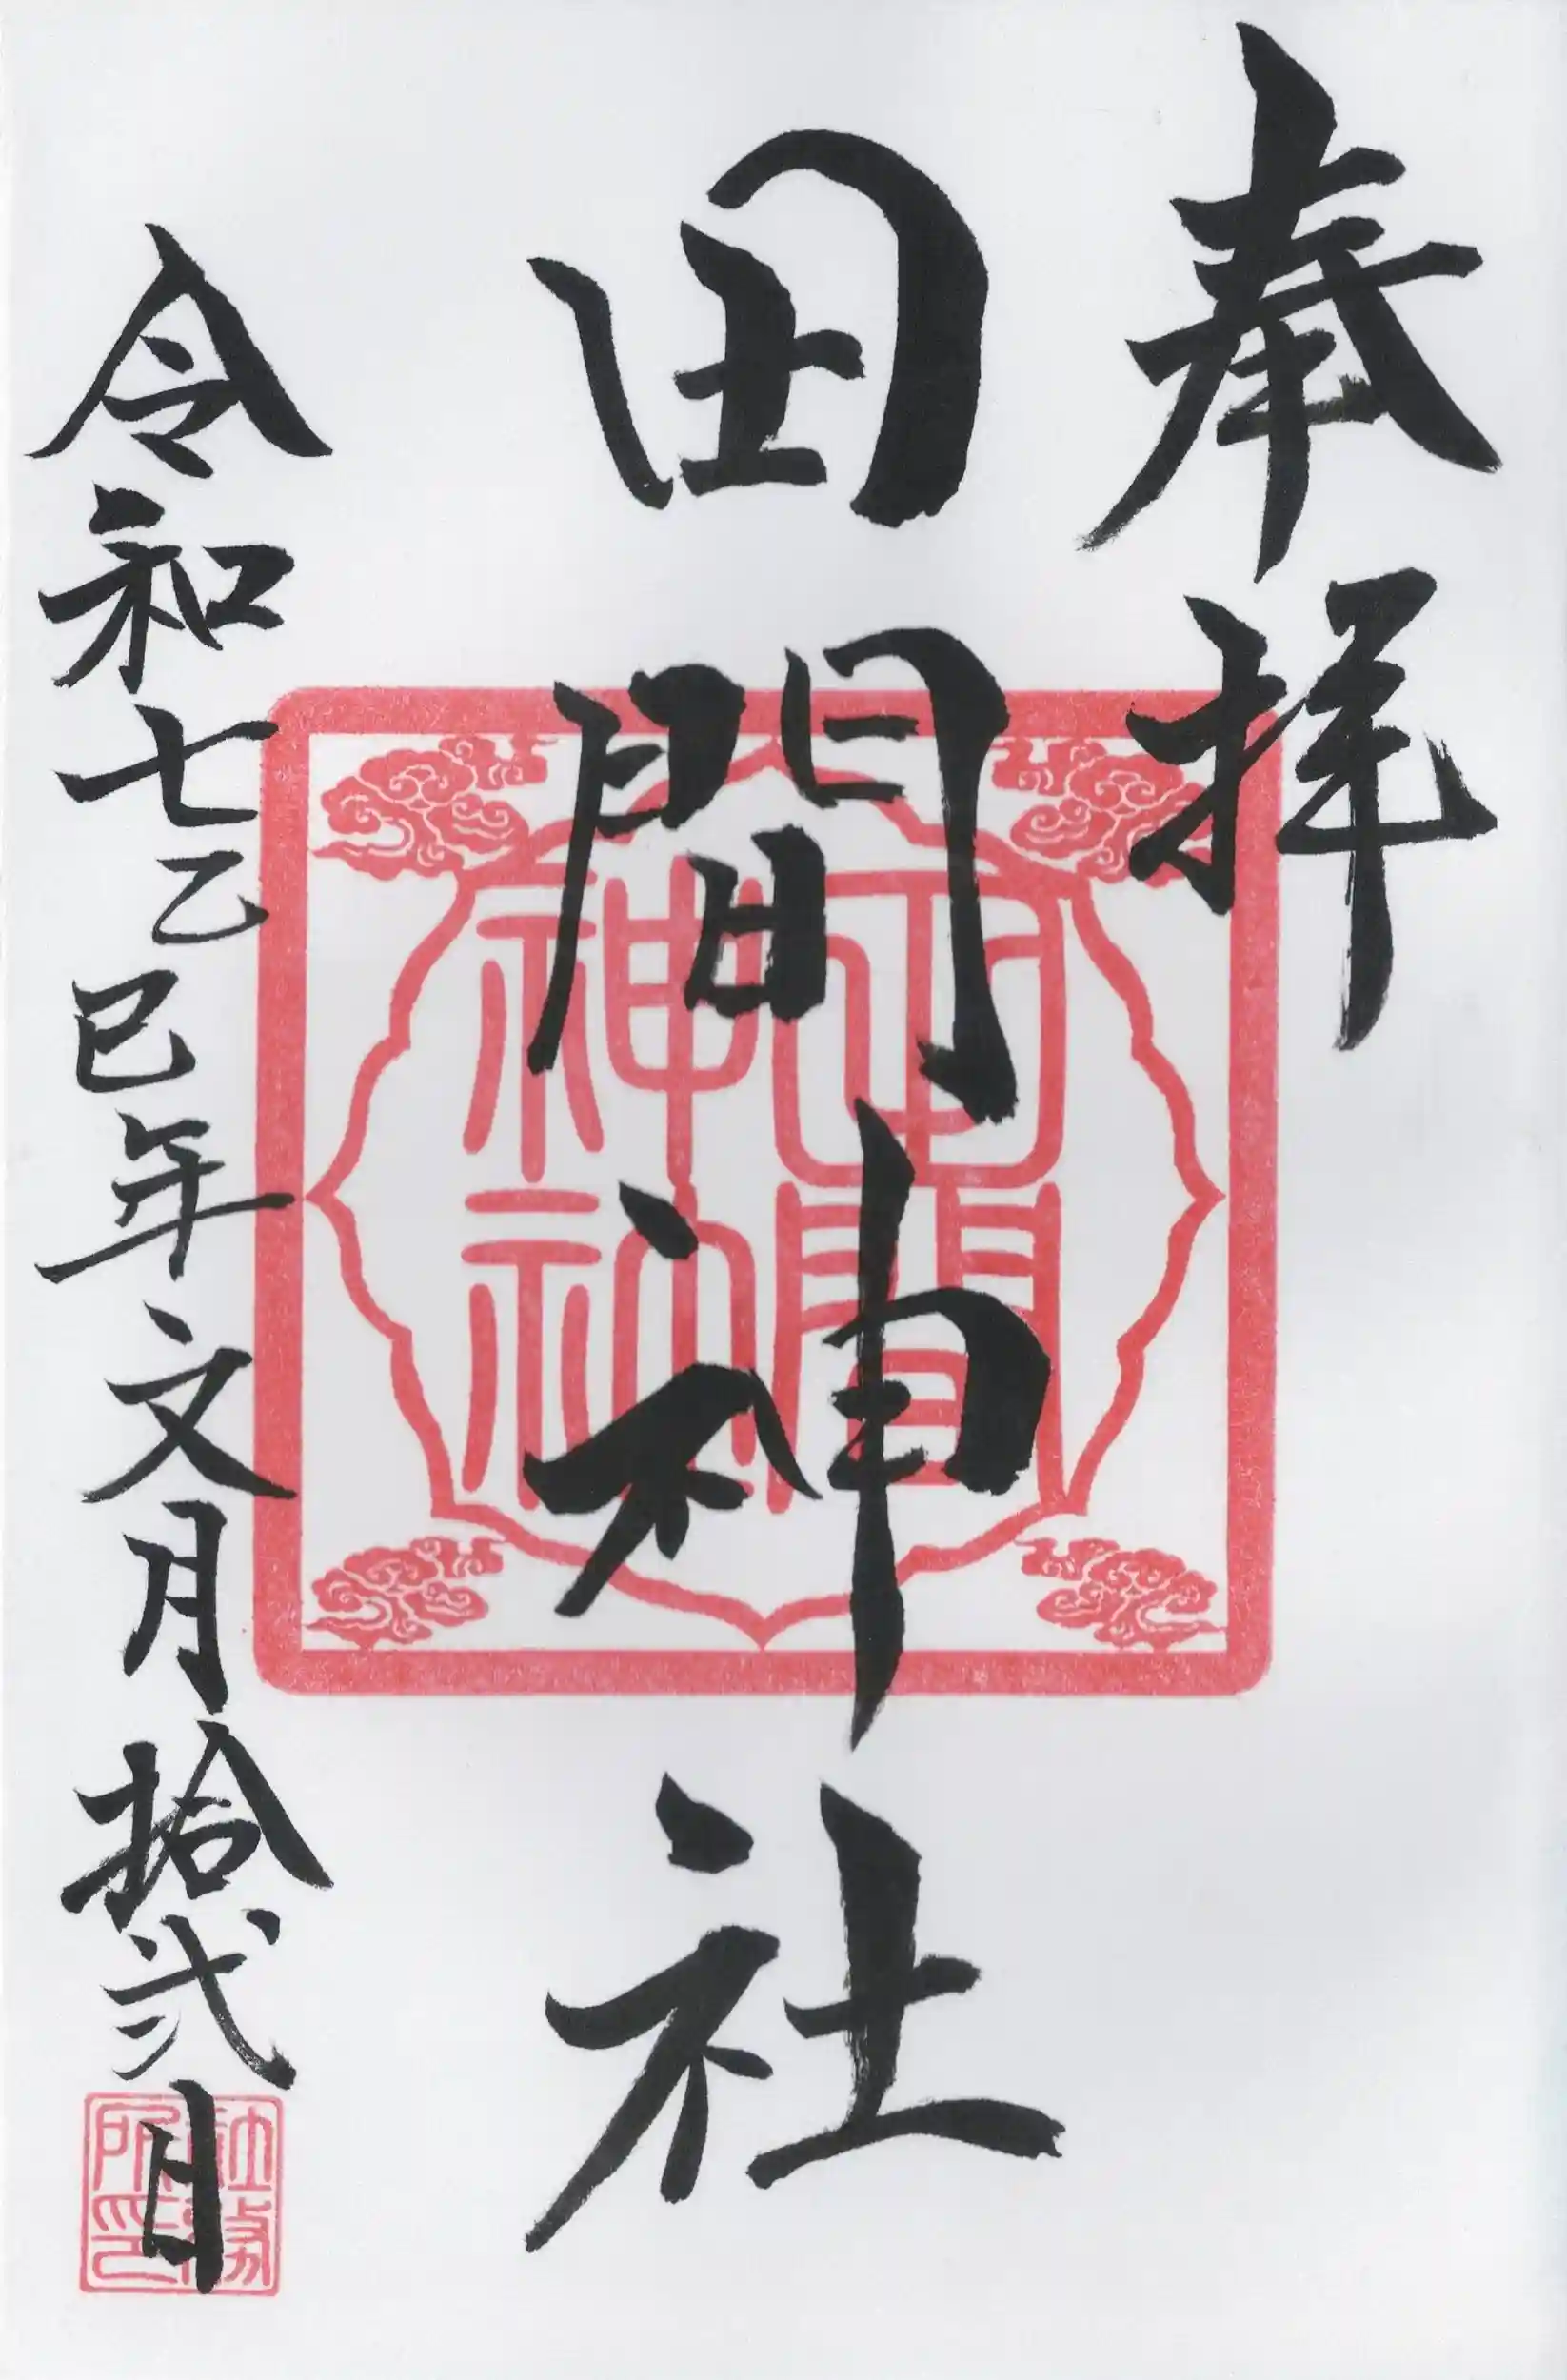 奉拝
田間神社
令和七乙巳年文月拾弐日
田間神社
社務所印